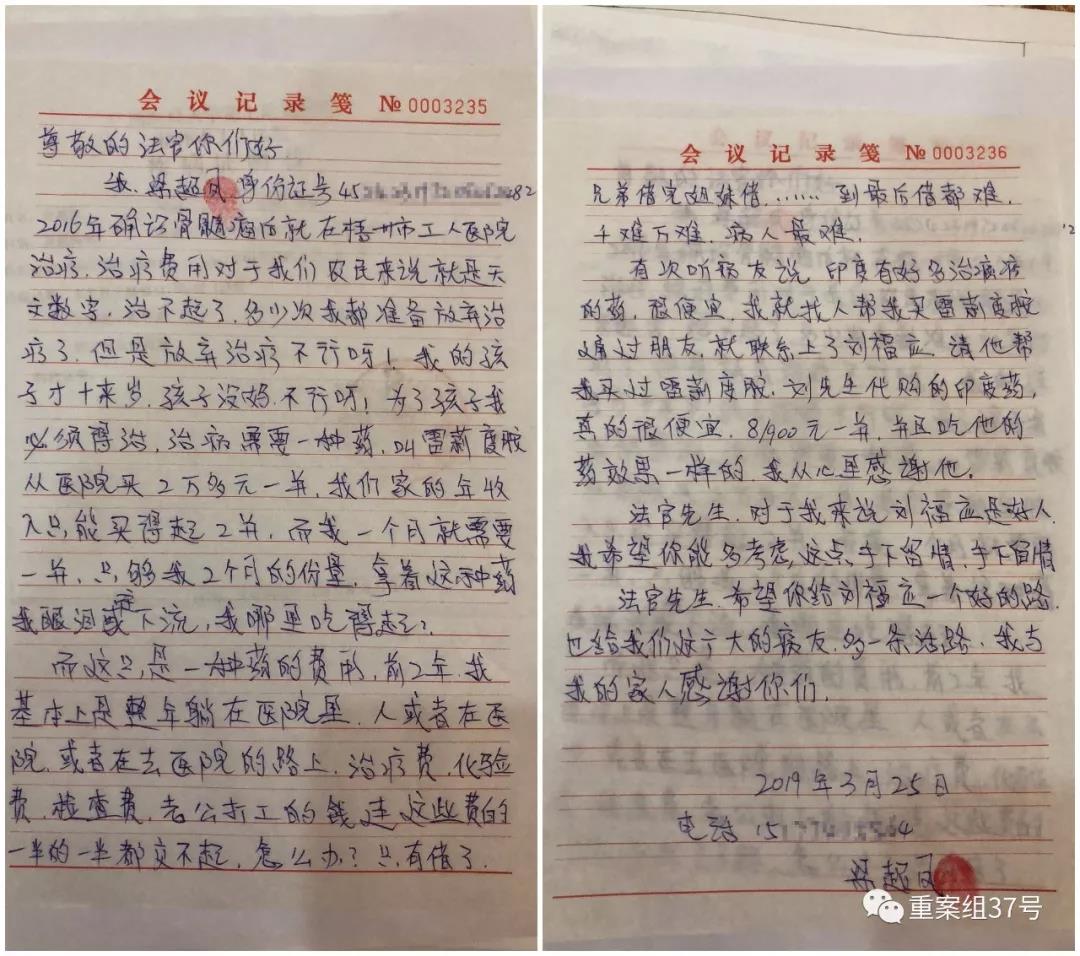 会议记录笺 № 0003235
尊敬的法官你们好
我.梁超凤 身份证号45 82
2016年确诊骨髓瘤后就在梧州市工人医院
治疗.治疗费用对于我们农民来说就是天
文数字,治不起了.多少次我都准备放弃治
疗了.但是放弃治疗不行呀!我的孩
子才十来岁.孩子没妈.不行呀!为了孩子我
必须得治,治病需要一种药,叫雷利度胺
从医院买2万多元一并,我们家的年收
入只能买得起2并,而我一个月就需要
一并,只够我2个月的份量,拿着这种药
我眼泪往下流,我哪里吃得起?
而这只是一种药的费用,前2年.我
基本上是整年躺在医院里.人或者在医
院.或者在去医院的路上.治疗费.化验
费.检查费.老公打工的钱连这些费的
一半的一半都交不起.怎么办?只有借了.
会议记录笺 № 0003236
兄弟借完姐妹借……到最后借都难.
千难万难.病人最难.
有次听病友说.印度有好多治病
的药.很便宜.我就找人帮我买雷利度胺
通过朋友.就联系上了刘福应.请他帮
我买过雷利度胺.刘先生代购的印度药,
真的很便宜.8/900元一并.并且吃他的
药效果一样的.我从心里感谢他.
法官先生.对于我来说刘福应是好人.
我希望你能多考虑这点.手下留情.手下留情
法官先生.希望你给刘福应一个好的路.
也给我们这广大的病友.多一条活路.我与
我的家人感谢你们.
2019年3月25日
电话 15
梁超凤
重案组37号